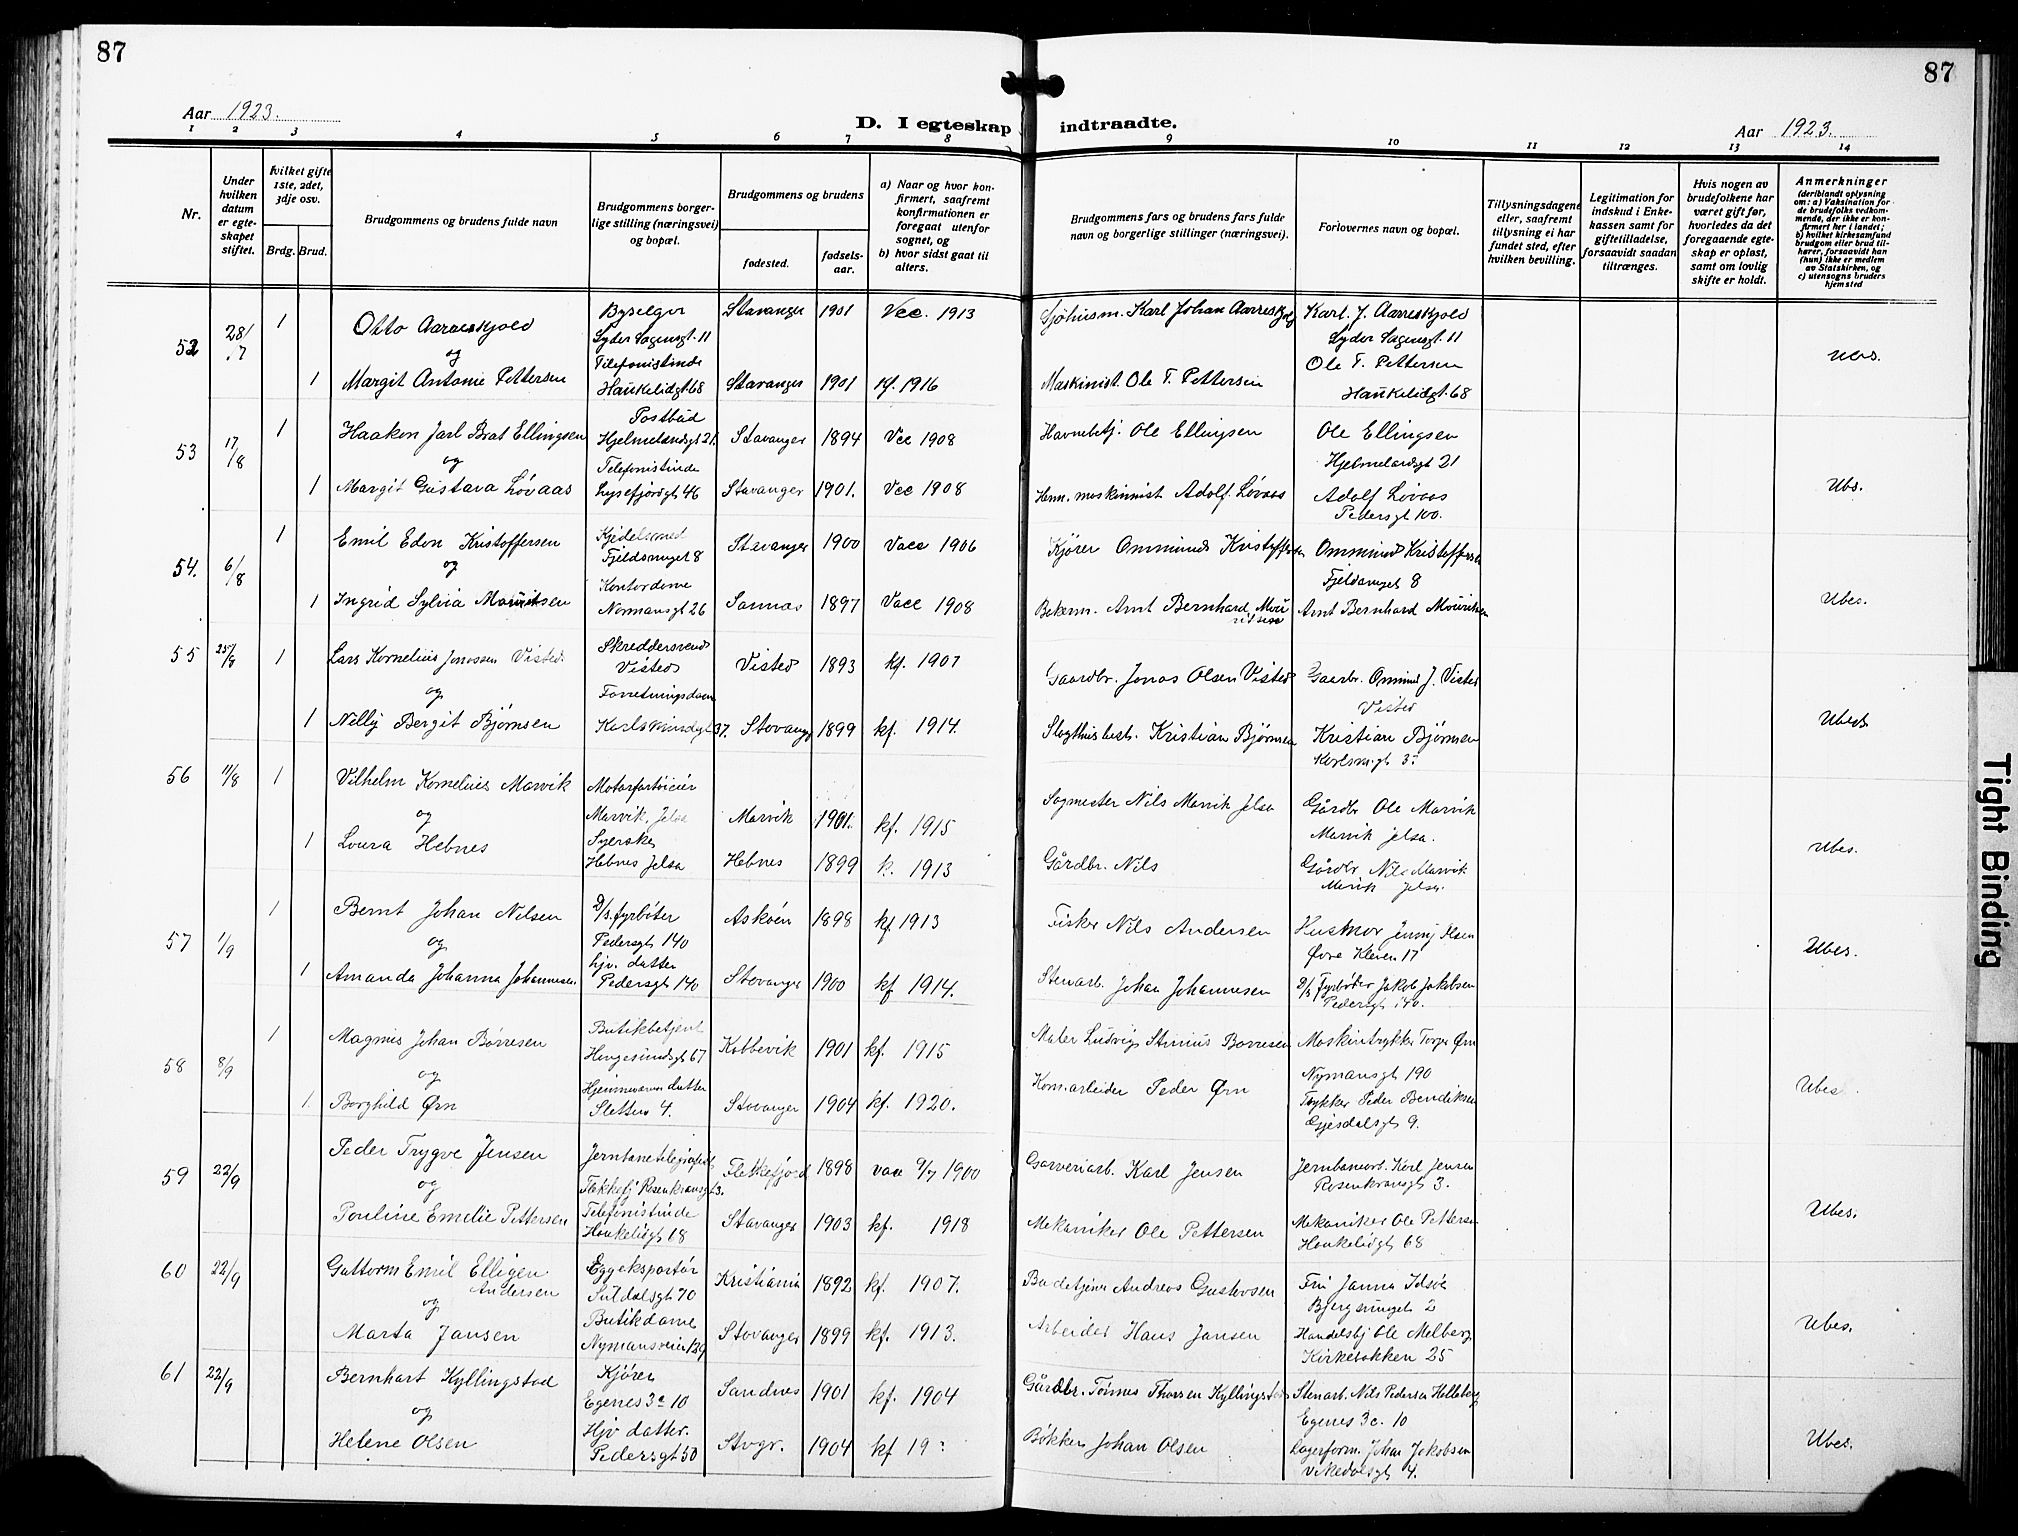 87
87
Aar 1923.
D. I egteskap indtraadte.
Aar 1923.
1 2 3 4 5 6 7 8 9 10 11 12 13 14
Nr.
Under hvilken datum er egteskapet stiftet.
hvilket gifte 1ste, 2det, 3dje osv.
Brdg. Brud.
Brudgommens og brudens fulde navn
Brudgommens borgerlige stilling (næringsvei) og bopæl.
Brudgommens og brudens
fødested.
fødselsaar.
a) Naar og hvor konfirmert, saafremt konfirmationen er foregaat utenfor sognet, og
b) hvor sidst gaat til alters.
Brudgommens fars og brudens fars fulde navn og borgerlige stillinger (næringsvei).
Forlovernes navn og bopæl.
Tillysningsdagene eller, saafremt tillysning ei har fundet sted, efter hvilken bevilling.
Legitimation for indskud i Enkekassen samt for giftetilladelse, forsaavidt saadan tiltrænges.
Hvis nogen av brudefolkene har været gift før, hvorledes da det foregaaende egteskap er opløst, samt om lovlig skifte er holdt.
Anmerkninger
(deriblandt oplysning om: a) Vaksination for de brudefolks vedkommende, der ikke er konfirmert her i landet; b) hvilket kirkesamfund brudgom eller brud tilhører, forsaavidt han (hun) ikke er medlem av Statskirken, og c) utensogns bruders hjemsted
52 28/7 1 Otto Aarreskjold Byselger Lyder Sagensgt. 11 Stavanger 1901 Vec. 1913 Sjøhusm. Karl Johan Aarreskjold Karl. J. Aarreskjold Lyder Sagensgt. 11
og
1 Margit Antonie Pettersen Telefonistinde Haukelidgt. 68 Stavanger 1901 kf. 1916 Maskinist. Ole T. Pettersen Ole T. Pettersen Haukelidgt. 68 Ubes.
53 17/8 1 Haakon Jarl Brat Ellingsen Postbud Hjelmelandsgt 21 Stavanger 1894 Vec 1908 Havnebetj. Ole Ellingsen Ole Ellingsen Hjelmelandsgt 21
og
1 Margit Gustava Løvaas Telefonistinde Lysefjordgt 46 Stavanger 1901. Vec 1908 Adolf Løvaas Adolf Løvaas Pedersgt 100. Ubs.
54. 6/8 1 Emil Edon Kristoffersen Kjedelsmed Fjeldsmuget 8 Stavanger 1900 Vacc 1906 Kjører Ommund Kristoffersen Ommund Kristoffersen Fjeldsmuget 8
og
1 Ingrid Sylvia Mauritsen Kontordame Normansgt 26 Sannas 1897 Vacc 1908 Arnt Bernhard Mouritsen Arnt Bernhard Mouritsen Ubes.
55 25/8 1 Lars Kornelius Jonassen Visted Skreddersvend Visted Visted 1893 kf. 1907 Gaardbr. Jonas Olsen Visted Gaarbr. Ommund J. Visted Visted
og
1 Nelly Bergit Bjørnsen Forretningsdame Karlsmindegt 37. Stavanger 1899 kf. 1914. Kristian Bjørnsen Kristian Bjørnsen Ubes.
56 11/8 1 Vilhelm Kornelius Marvik Marvik, Jelsa Marvik 1901. kf. 1915 Sagmester Nils Marvik Jelsa Gårdbr Ole Marvik Marvik Jelsa.
og
1 Loura Hebnes Syerske Hebnes Jelsa Hebnes 1899 k. 1913 Gårdbr. Nils Gårdbr Nils Marvik Marvik Jelsa. Ubes.
57 1/9 1 Bernt Johan Nilsen D/s. fyrbøter Pedersgt 140 Askøen 1898 kf 1913 Fisker Nils Andersen Husmor Jenny Olsen Øvre Kleven 17
og
1 Amanda Johanna Johannesen hjv. datter Pedersgt 140 Stavanger 1900 kf 1914. Stenarb. Johan Johannesen D/s fyrbøder Jakob Jakobsen Pedersgt 140. Ubes.
58 8/9 1 Magnus Johan Børresen Butikbetjent Haugesundsgt 67 Kobbevik 1901 kf. 1915 Maler Ludvig Stinius Borresen Maskintrykker Torger Ørn Nymansgt 190
og
1. Borghild Ørn Hjemmeværende datter Sletten 4. Stavanger 1904 kf. 1920. Komarbeider Peder Ørn Trykker Peder Bendiksen Gjesdalsgt 9. Ubes
59 22/9 Peder Trygve Jensen Jernbanetelegrafist Flekkefj Rosenkransgt 3. Flekkefjord 1898 vac 9/7 1900 Garveriarb. Karl Jensen Jernbanearb. Karl Jensen Rosenkransgt 3.
og
Pouline Emelie Pettersen Telefonistinde Haukelidgt 68 Stavanger 1903 kf. 1918 Mekaniker Ole Pettersen Mekaniker Ole Pettersen Haukelidgt 68 Ubes.
60 22/9 Guttorm Emil Elligen Andersen Eggeksportør Suldalsgt 70 Kristiania 1892 kf. 1907. Badetjener Andreas Gustavsen Fru Janna Idsøe Bjergsmuget 2
og
Marta Jansen Butikdame Nymansveien 129 Stavanger 1899 kf. 1913. Arbeider Hans Jansen Handelsbj Ole Melberg Kirkebakken 25 Ubes.
61 22/9 Bernhart Kyllingstad Kjører Egenes 3c 10 Sandnes 1901 kf. 1904 Gårdbr. Tønnes Thorsen Kyllingstad Stenarb. Nils Pedersen Helleberg Egenes 3c. 10
og
Helene Olsen Hjv datter. Pedersgt 50 Stvgr. 1904 kf 19 Bøkker Johan Olsen Lagerform. Johan Jakobsen Vikedalsgt 4. Ubes.
Tight Binding